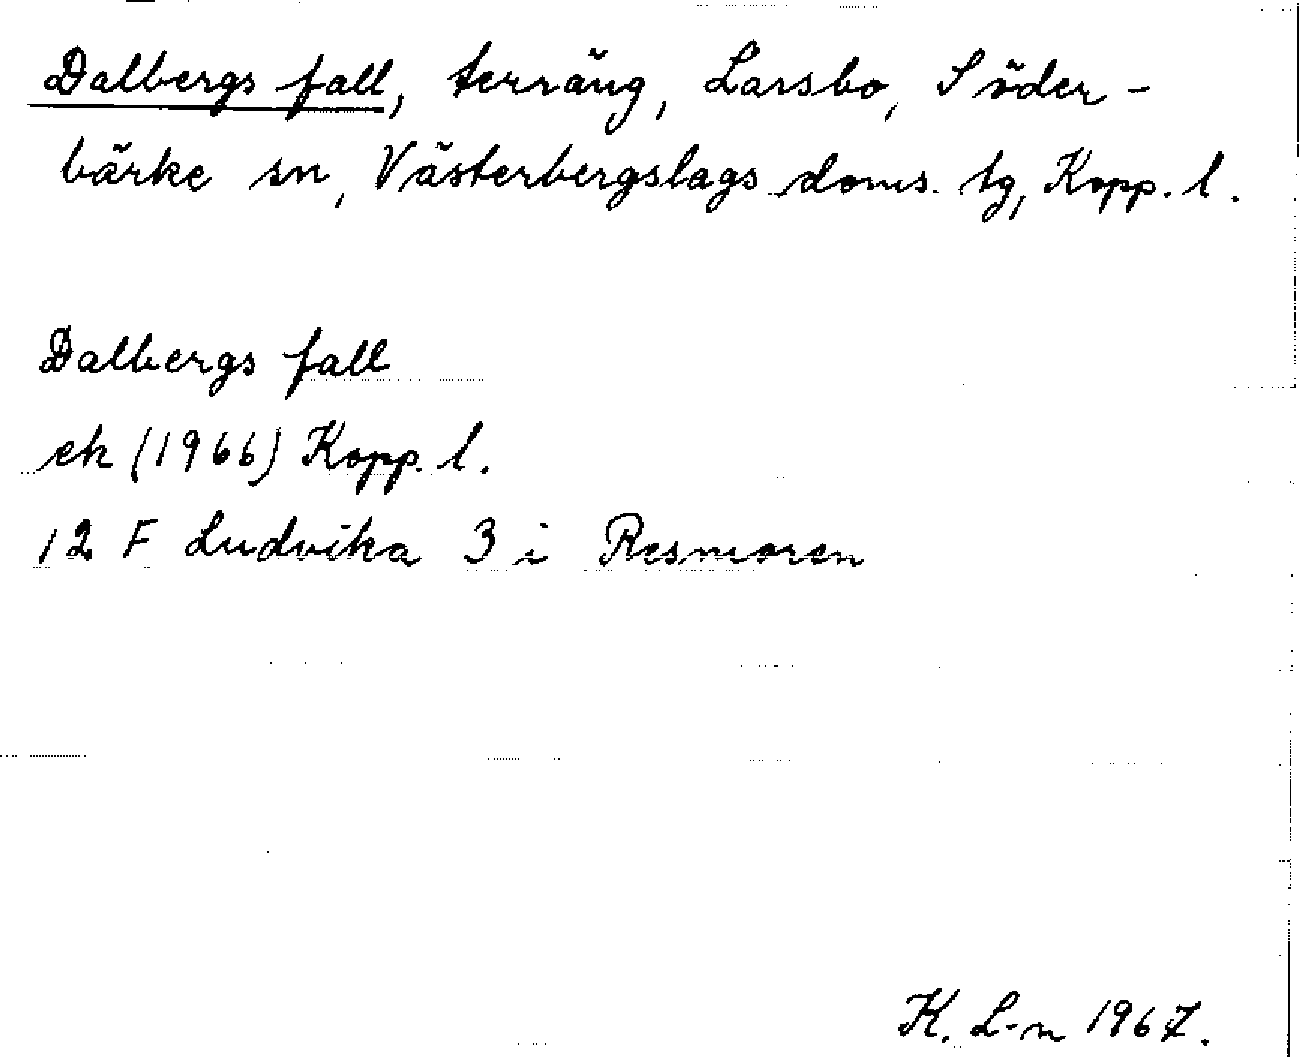 Dalbergs fall, terräng, Larsbo, Söder-
bärke sn, Västerbergslags doms. tg, Kopp. l.
Dalbergs fall
ek (1966) Kopp. l.
12 F Ludvika 3 i Resmoren
K. L-n 1967.